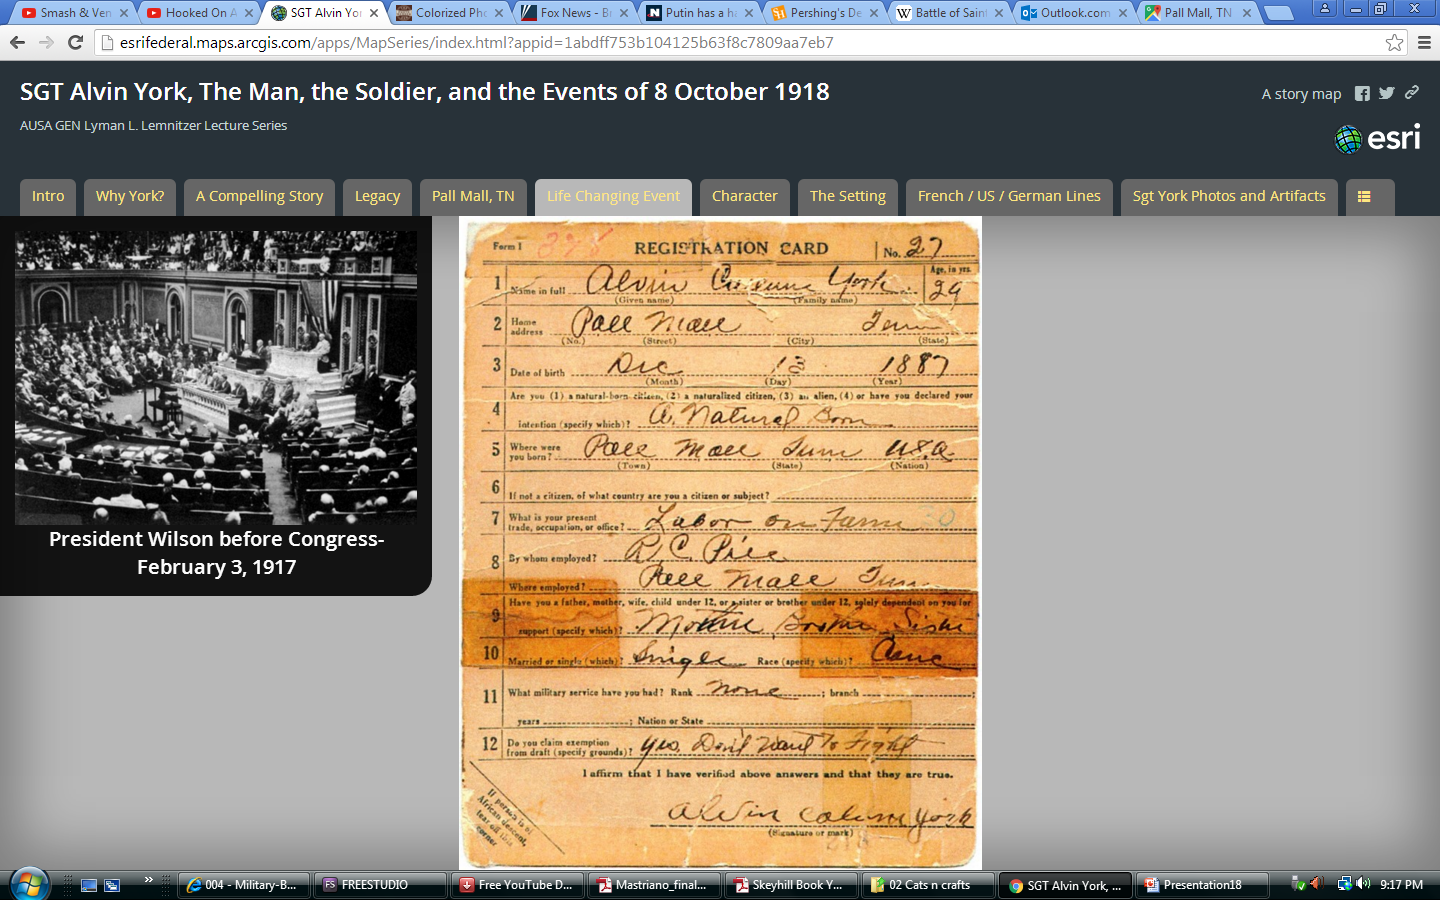 Smash & Ven
Hooked On A
SGT Alvin Yor
Colorized Pho
Fox News - Br
Putin has a ha
Pershing's De
Battle of Saint
Outlook.com
Pall Mall, TN
esrifederal.maps.arcgis.com/apps/MapSeries/index.html?appid=1abdff753b104125b63f8c7809aa7eb7
SGT Alvin York, The Man, the Soldier, and the Events of 8 October 1918
A story map
AUSA GEN Lyman L. Lemnitzer Lecture Series
esri
Intro
Why York?
A Compelling Story
Legacy
Pall Mall, TN
Life Changing Event
Character
The Setting
French / US / German Lines
Sgt York Photos and Artifacts
President Wilson before Congress-
February 3, 1917
Form 1 REGISTRATION CARD No. 27
1 Name in full Alvin York Age, in yrs. 29
(Given name) (Family name)
2 Home address Pall Mall Tenn
(No.) (Street) (City) (State)
3 Date of birth Dec 13 1887
(Month) (Day) (Year)
Are you (1) a natural-born citizen, (2) a naturalized citizen, (3) an alien, (4) or have you declared your
4 intention (specify which)? A. Natural Born
5 Where were you born? Pall Mall Tenn U.S.A.
(Town) (State) (Nation)
6 If not a citizen, of what country are you a citizen or subject?
7 What is your present trade, occupation, or office? Labor on Farm
8 By whom employed? R. C. Pile
Where employed? Pall Mall Tenn
9 Have you a father, mother, wife, child under 12, or a sister or brother under 12, solely dependent on you for
support (specify which)? Mother, Brother Sister
10 Married or single (which)? Single Race (specify which)?
11 What military service have you had? Rank none ; branch ;
years ; Nation or State
12 Do you claim exemption from draft (specify grounds)? yes. Don't Want To Fight
I affirm that I have verified above answers and that they are true.
Alvin Cullum York
(Signature or mark)
If person is of
African descent,
tear off this
corner.
004 - Military-B...
FREESTUDIO
Free YouTube D...
Mastriano_final...
Skeyhill Book Y...
02 Cats n crafts
SGT Alvin York, ...
Presentation18
9:17 PM